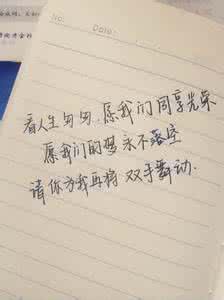 No.
Date:
看人生匆匆,愿我们同享光荣
愿我们的梦永不落空
请你为我再将 双手舞动.